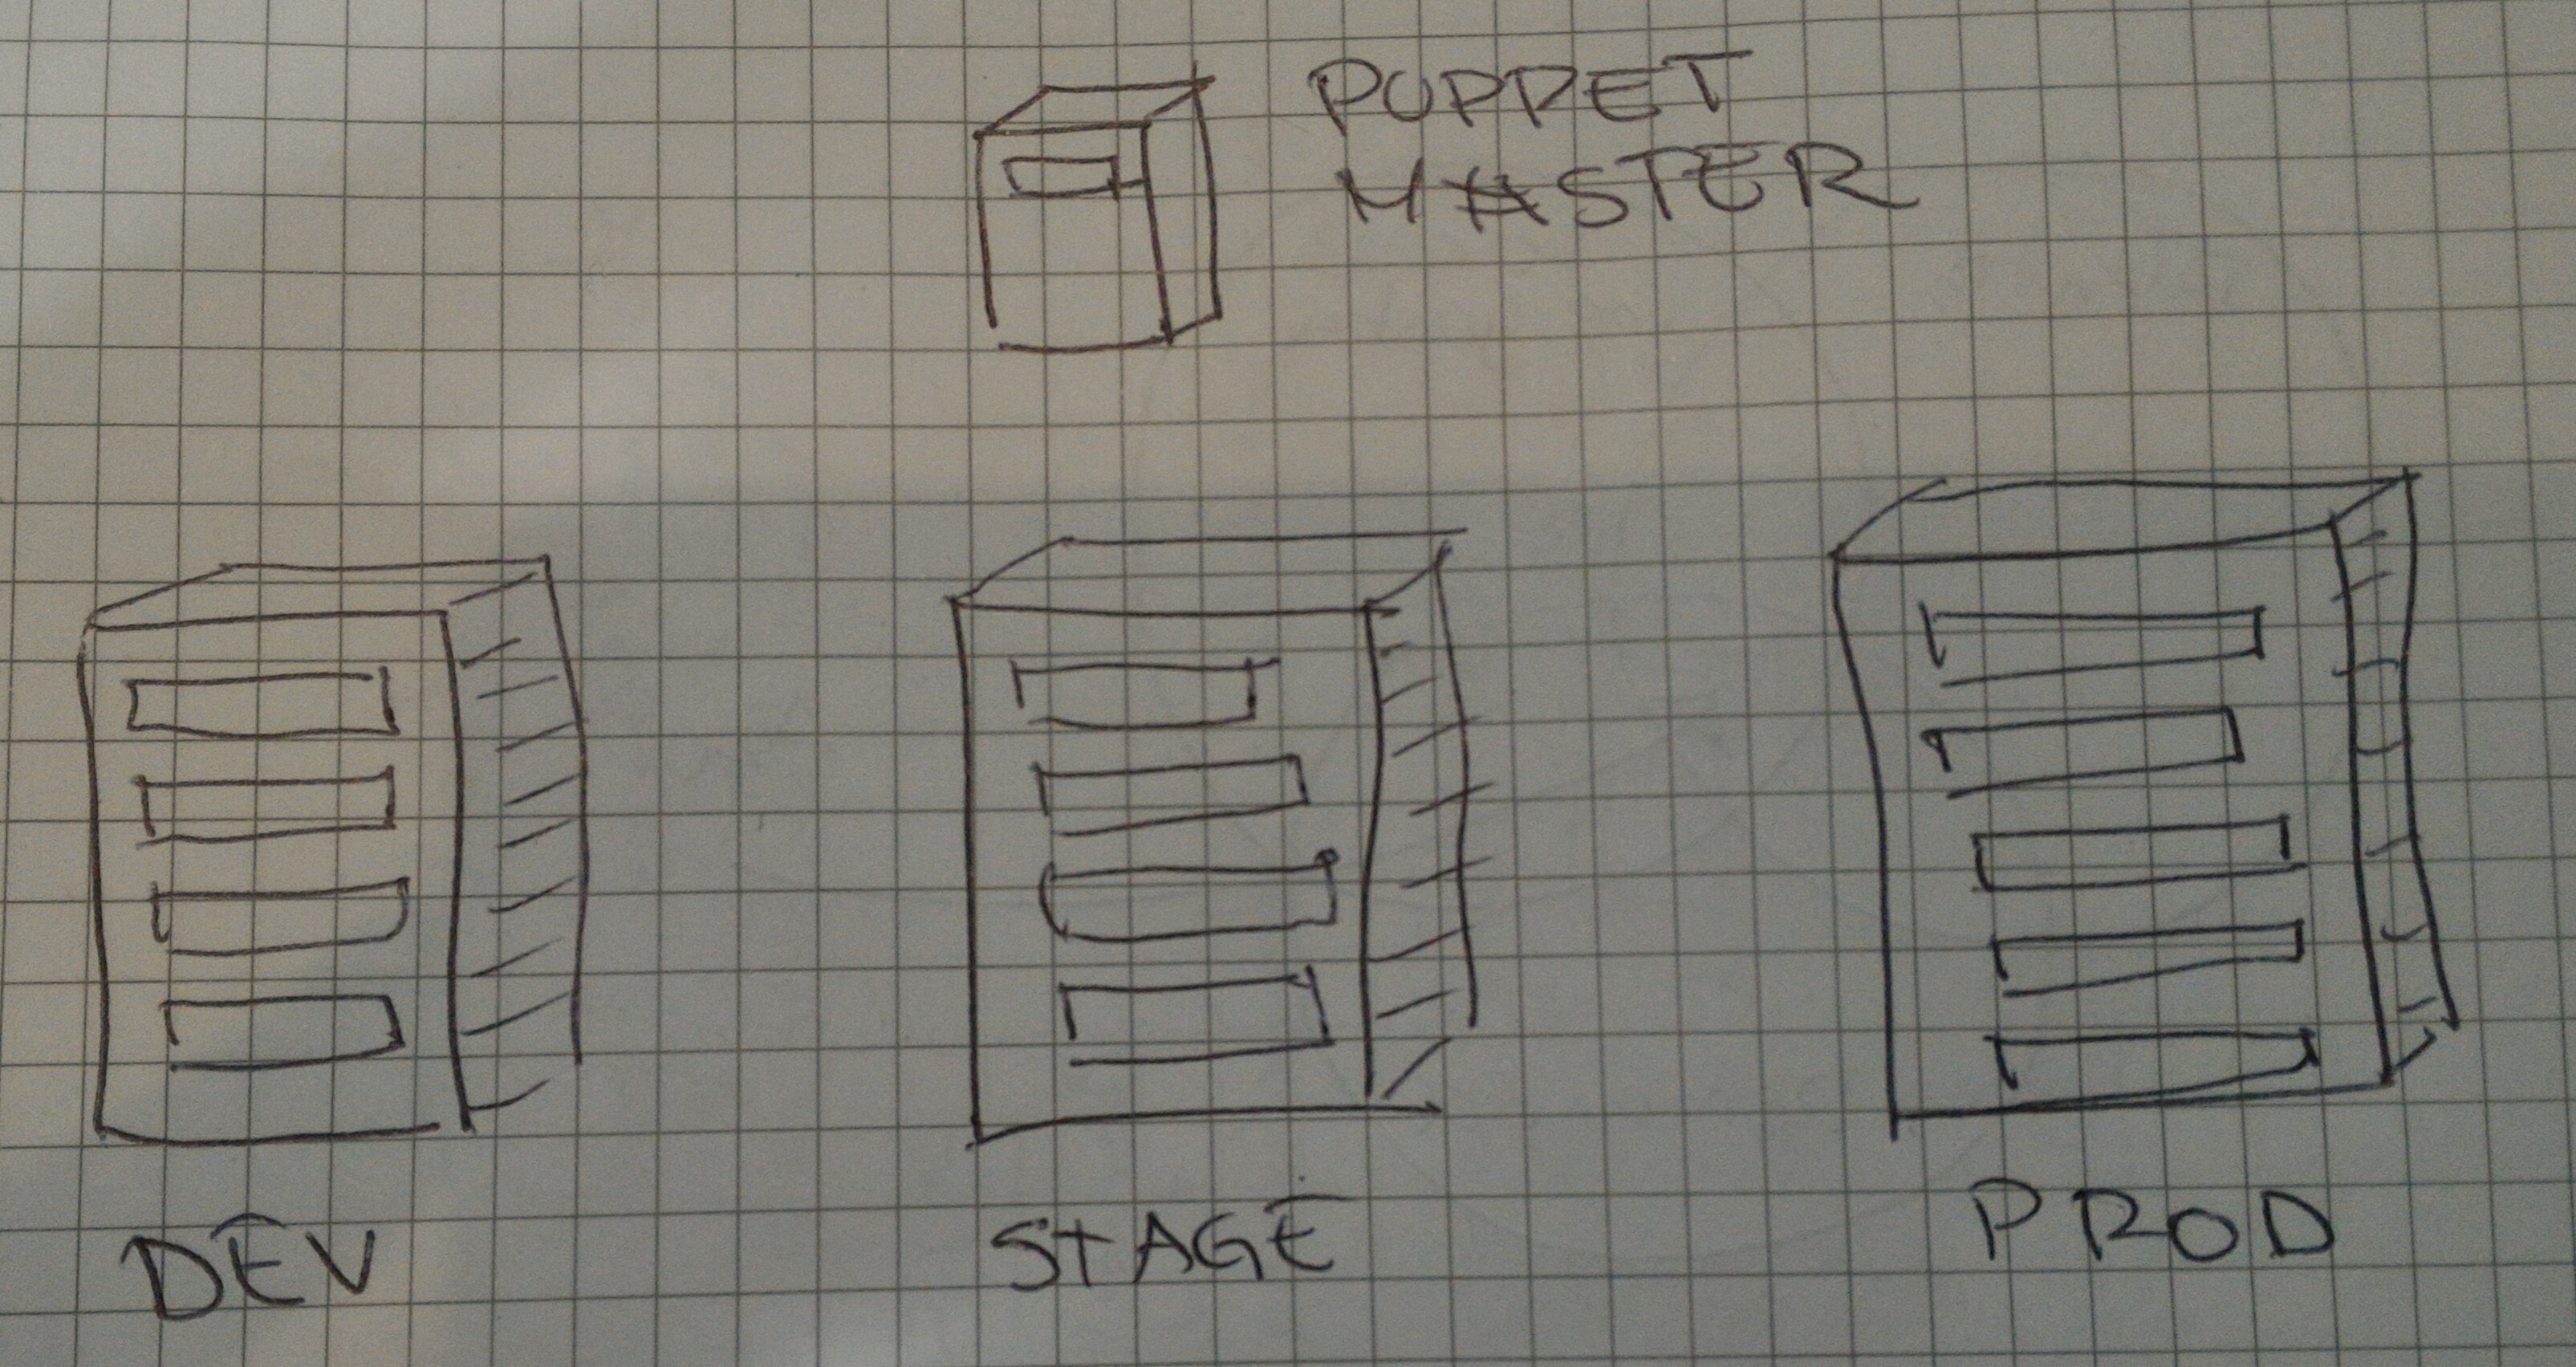 PUPPET
MASTER
DEV
STAGE
PROD